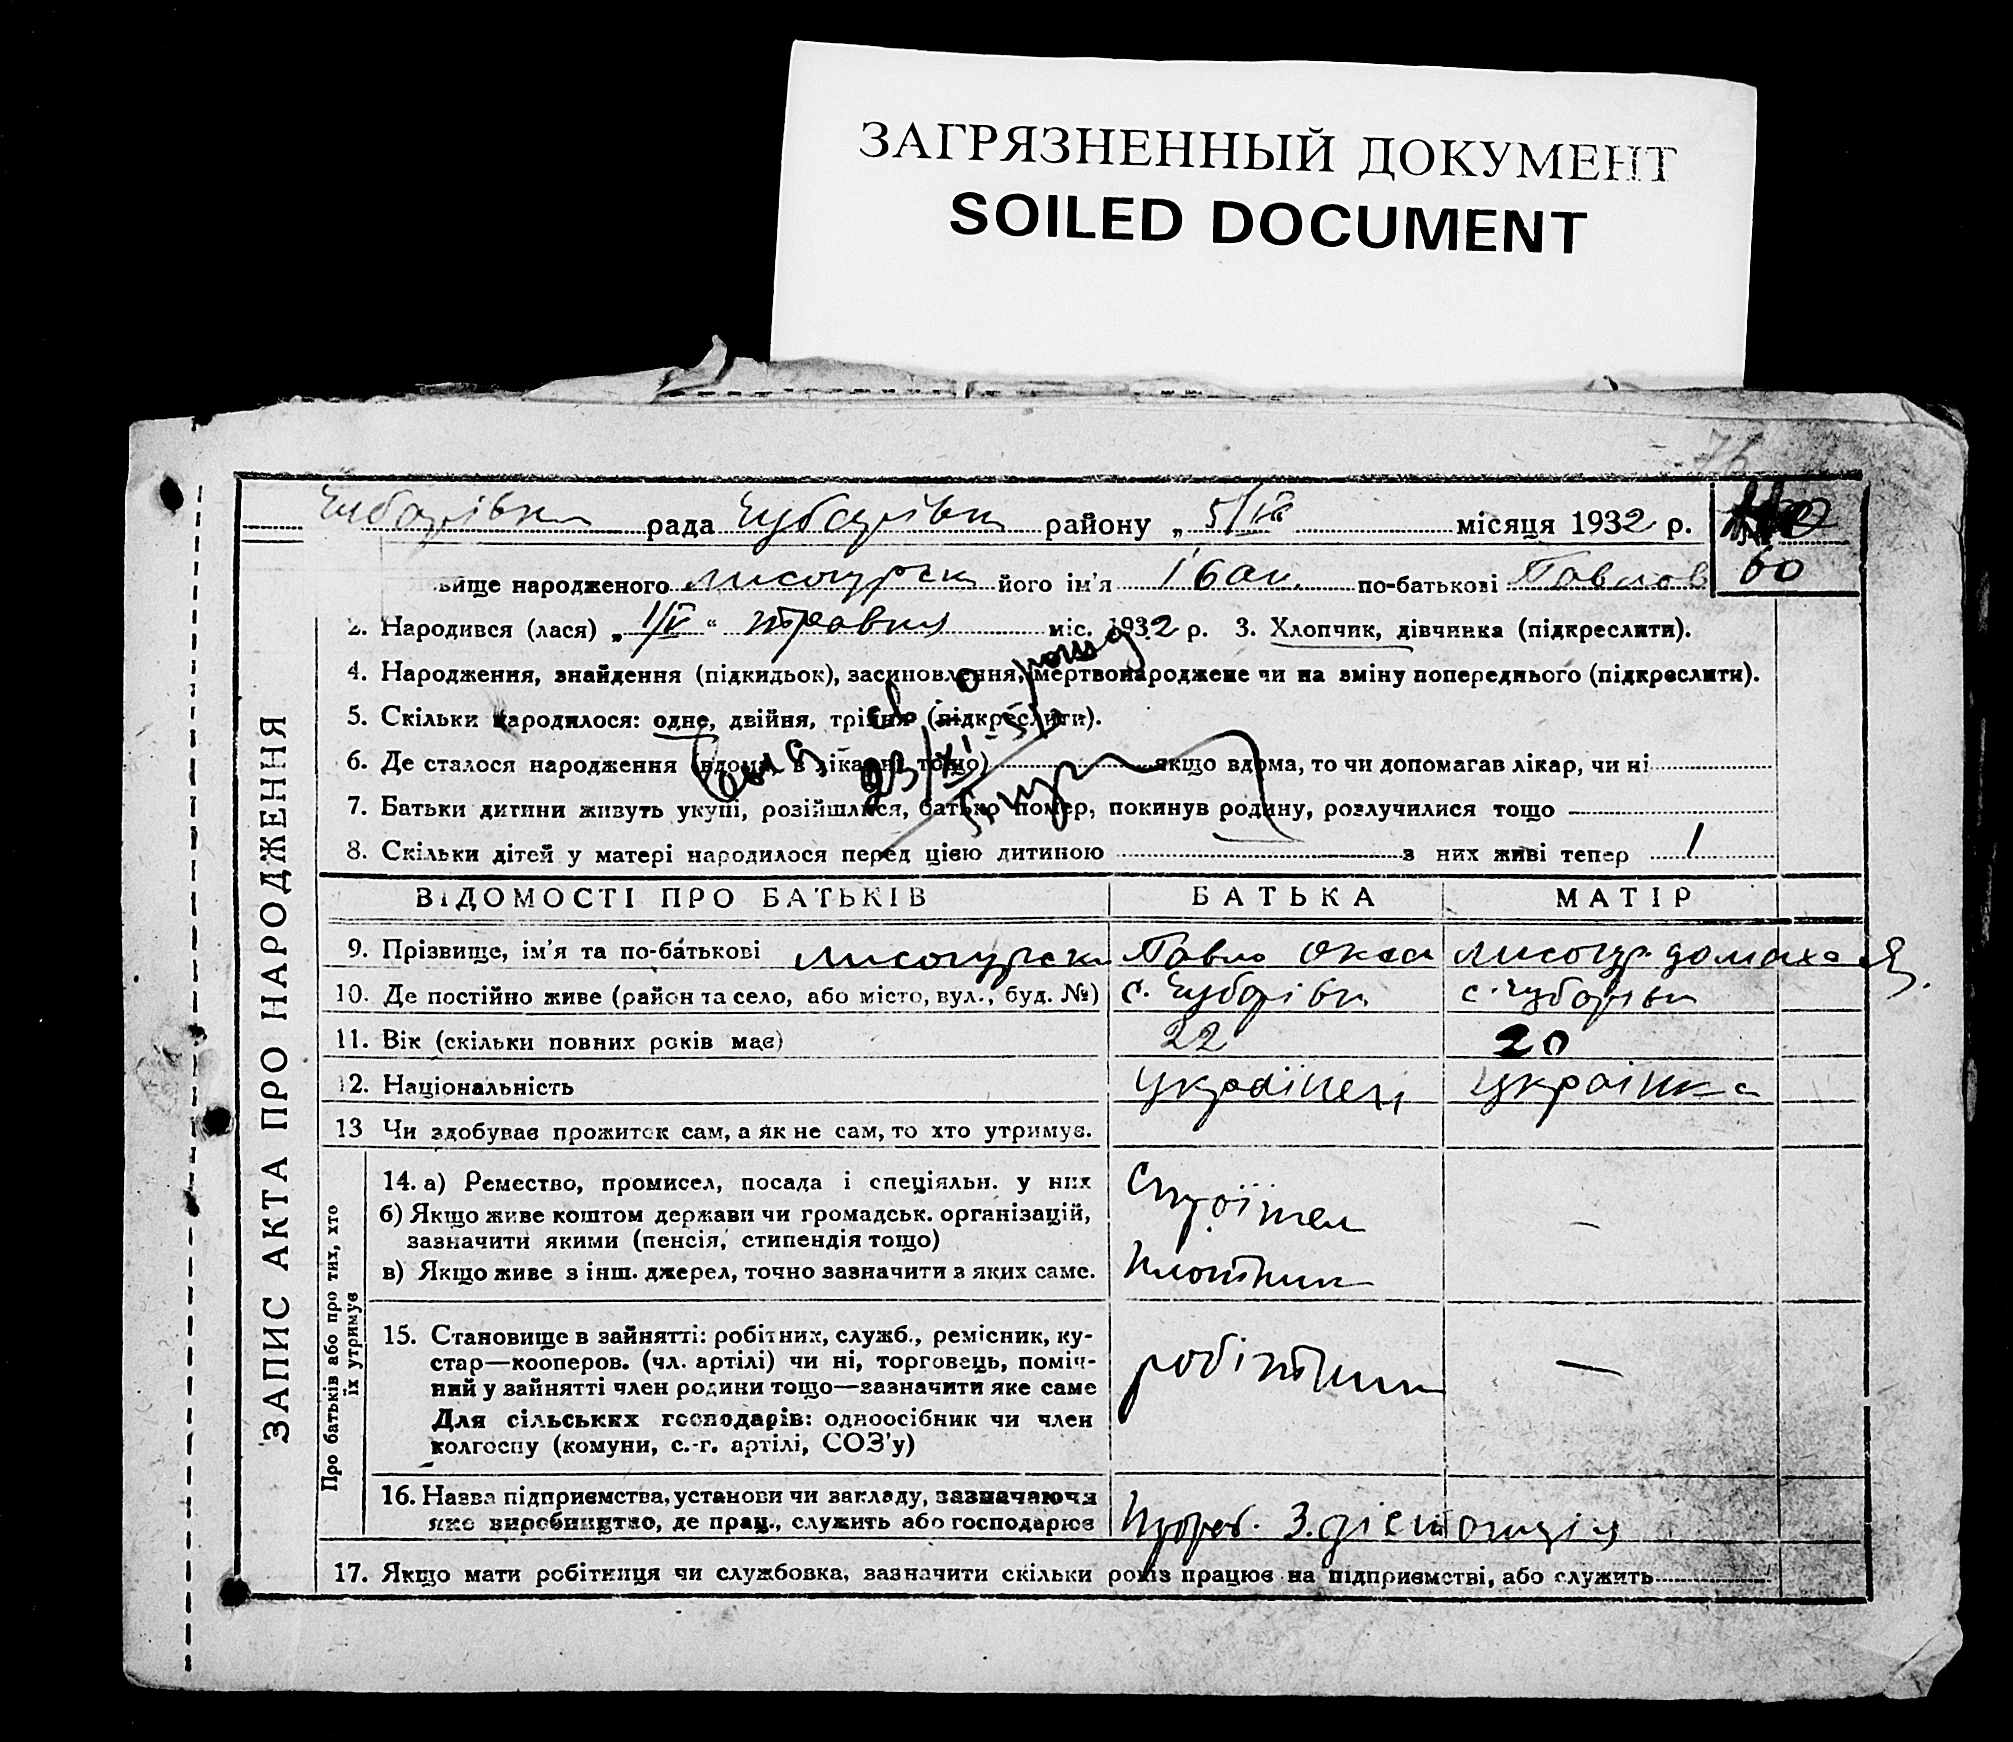 ЗАГРЯЗНЕННЫЙ ДОКУМЕНТ
SOILED DOCUMENT
76
Чубарівка рада Чубарівка району „ 5/ місяця 1932 р.
60
вище народженого Лисогурськ його ім'я Іван по-батькові Павлов
2. Народився (лася) „ 1/V “ травня міс. 1932 р. 3. Хлопчик, дівчинка (підкреслити).
4. Народження, знайдення (підкидьок), засиновлення, мертвонароджене чи на зміну попереднього (підкреслити).
5. Скільки народилося: одне, двійня, трійня (підкреслити).
6. Де сталося народження (вдома, в лікарні тощо) якщо вдома, то чи допомагав лікар, чи ні
7. Батьки дитини живуть укупі, розійшлися, батько помер, покинув родину, розлучилися тощо
8. Скільки дітей у матері народилося перед цією дитиною з них живі тепер 1
ЗАПИС АКТА ПРО НАРОДЖЕННЯ
ВІДОМОСТІ ПРО БАТЬКІВ БАТЬКА МАТІР
9. Прізвище, ім'я та по-батькові Лисогурськ Павло Лисогур. Домаха
10. Де постійно живе (район та село, або місто, вул., буд. №) с. Чубарівк с. Чубарівк
11. Вік (скільки повних років має) 22 20
12. Національність українец українка
13 Чи здобував прожиток сам, а як не сам, то хто утримує.
Про батьків або про тих, хто їх утримує
14. а) Ремество, промисел, посада і спеціяльн. у них Строїтел —
б) Якщо живе коштом держави чи громадськ. організацій,
зазначити якими (пенсія, стипендія тощо)
в) Якщо живе з інш. джерел, точно зазначити з яких саме. плотник
15. Становище в зайнятті: робітник, служб., ремісник, ку-
стар—кооперов. (чл. артілі) чи ні, торговець, поміч- робітник —
ний у зайнятті член родини тощо—зазначити яке саме
Для сільських господарів: одноосібник чи член
колгоспу (комуни, с.-г. артілі, СОЗ'у)
16. Назва підприємства, установи чи закладу, зазначаючи
яке виробництво, де прац., служить або господарює
17. Якщо мати робітниця чи службовка, зазначити скільки років працює на підприємстві, або служить